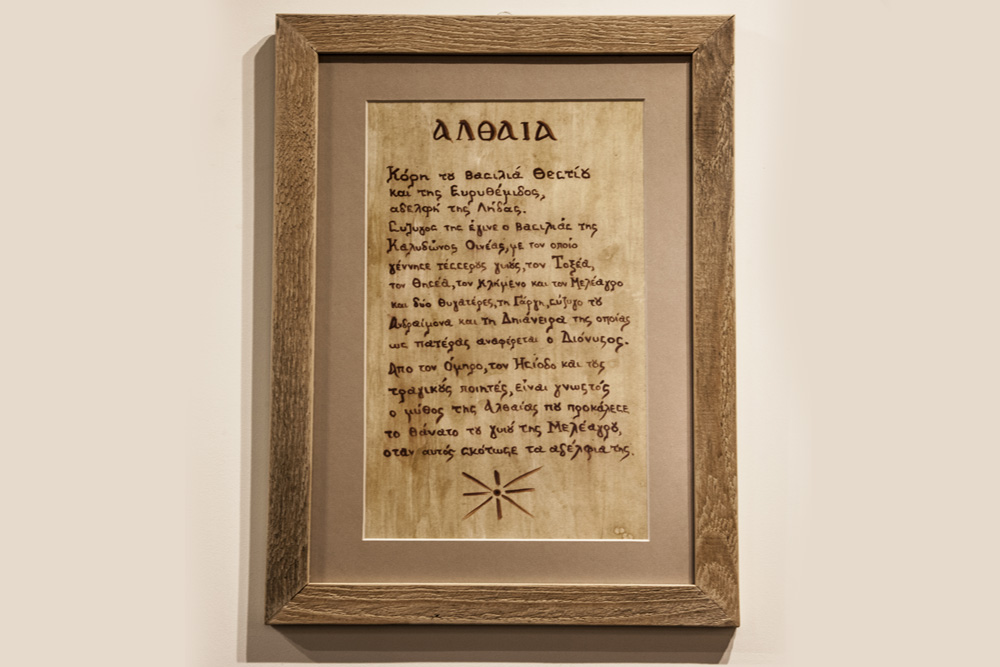 ΑΛΘΑΙΑ
Κόρη τȣ βαϲιλιά Θεϲτίȣ
και της Ευρυθέμιδος,
αδελφή της Λήδας.
Ϲύζυγοϲ της έγινε ο βαϲιλιάϲ της
Καλυδώνος Οινέας, με τον οποίο
γέννηϲε τέϲϲερȣς γιȣς, τον Τοξέα,
τον Θηϲέα, τον Κλύμενο και τον Μελέαγρο
και δύο θυγατέρες, τη Γόργη, ϲύζυγο τȣ
Ανδραίμονα και τη Δηιάνειρα της οποίας
ως πατέρας αναφέρεται ο Διόνυϲος.
Απο τον Όμηρο, τον Ηϲίοδο και τȣς
τραγικȣς ποιητές, είναι γνωϲτός
ο μύθος της Αλθαίας πȣ προκάλεϲε
το θάνατο τȣ γιȣ της Μελέαγρȣ,
όταν αυτός ϲκότωϲε τα αδέλφια της.